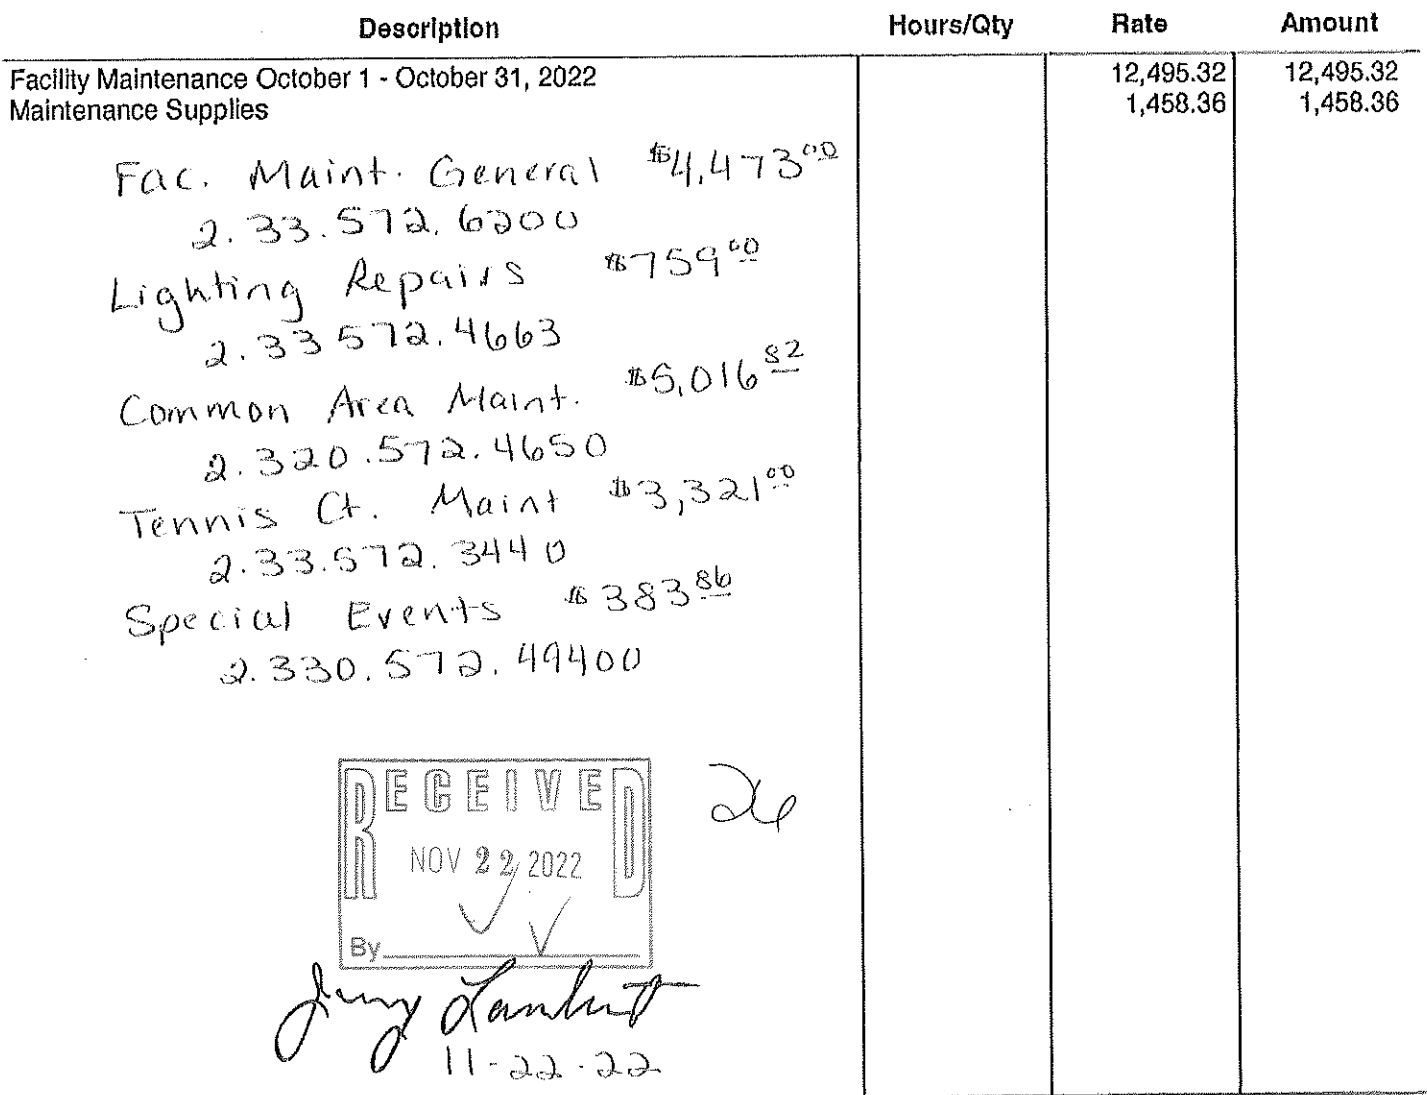 Description Hours/Qty Rate Amount
Facility Maintenance October 1 - October 31, 2022 12,495.32 12,495.32
Maintenance Supplies 1,458.36 1,458.36
Fac. Maint. General $4,473.00
2.33.572.6200
Lighting Repairs $759.00
2.33 572.4663
Common Area Maint. $5,016.82
2.320.572.4650
Tennis Ct. Maint $3,321.00
2.33.572.3440
Special Events $383.86
2.330.572.49400
RECEIVED
26
NOV 22 2022
By
Jerry Lambert
11-22-22